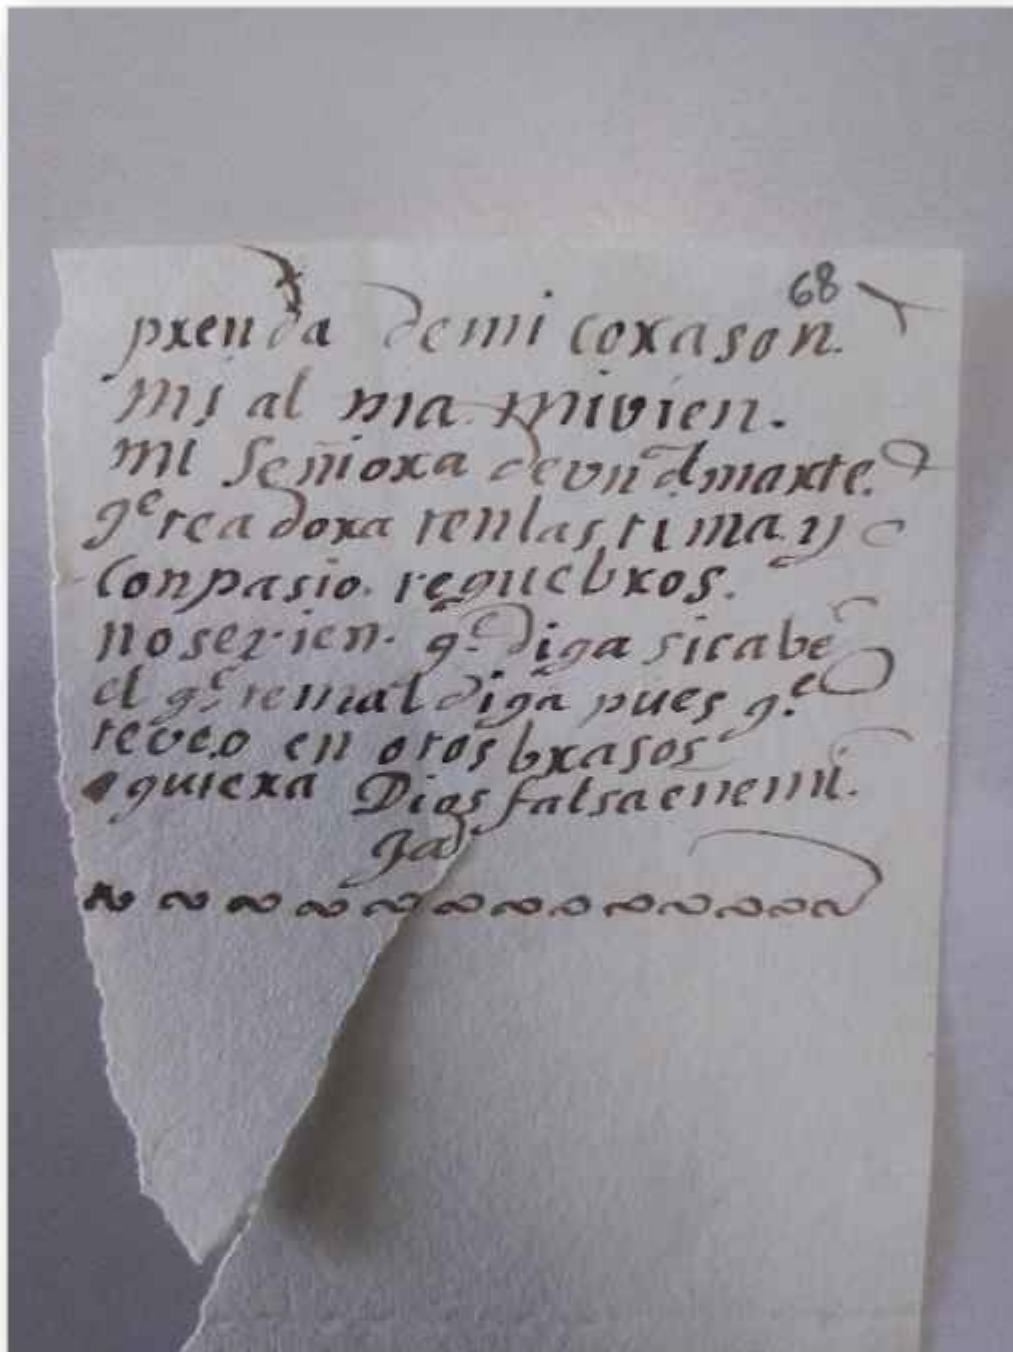 68
prenda de mi corason.
mi al ma mi vien.
mi señiora de un dmarte.
qe te adora ten lastima y
Conpasio. requebros.
no se tien. qe diga si cabe
el qe te mal diga pues qe
te veo en otos brasos
quiera Dios falsa enemi.
ga